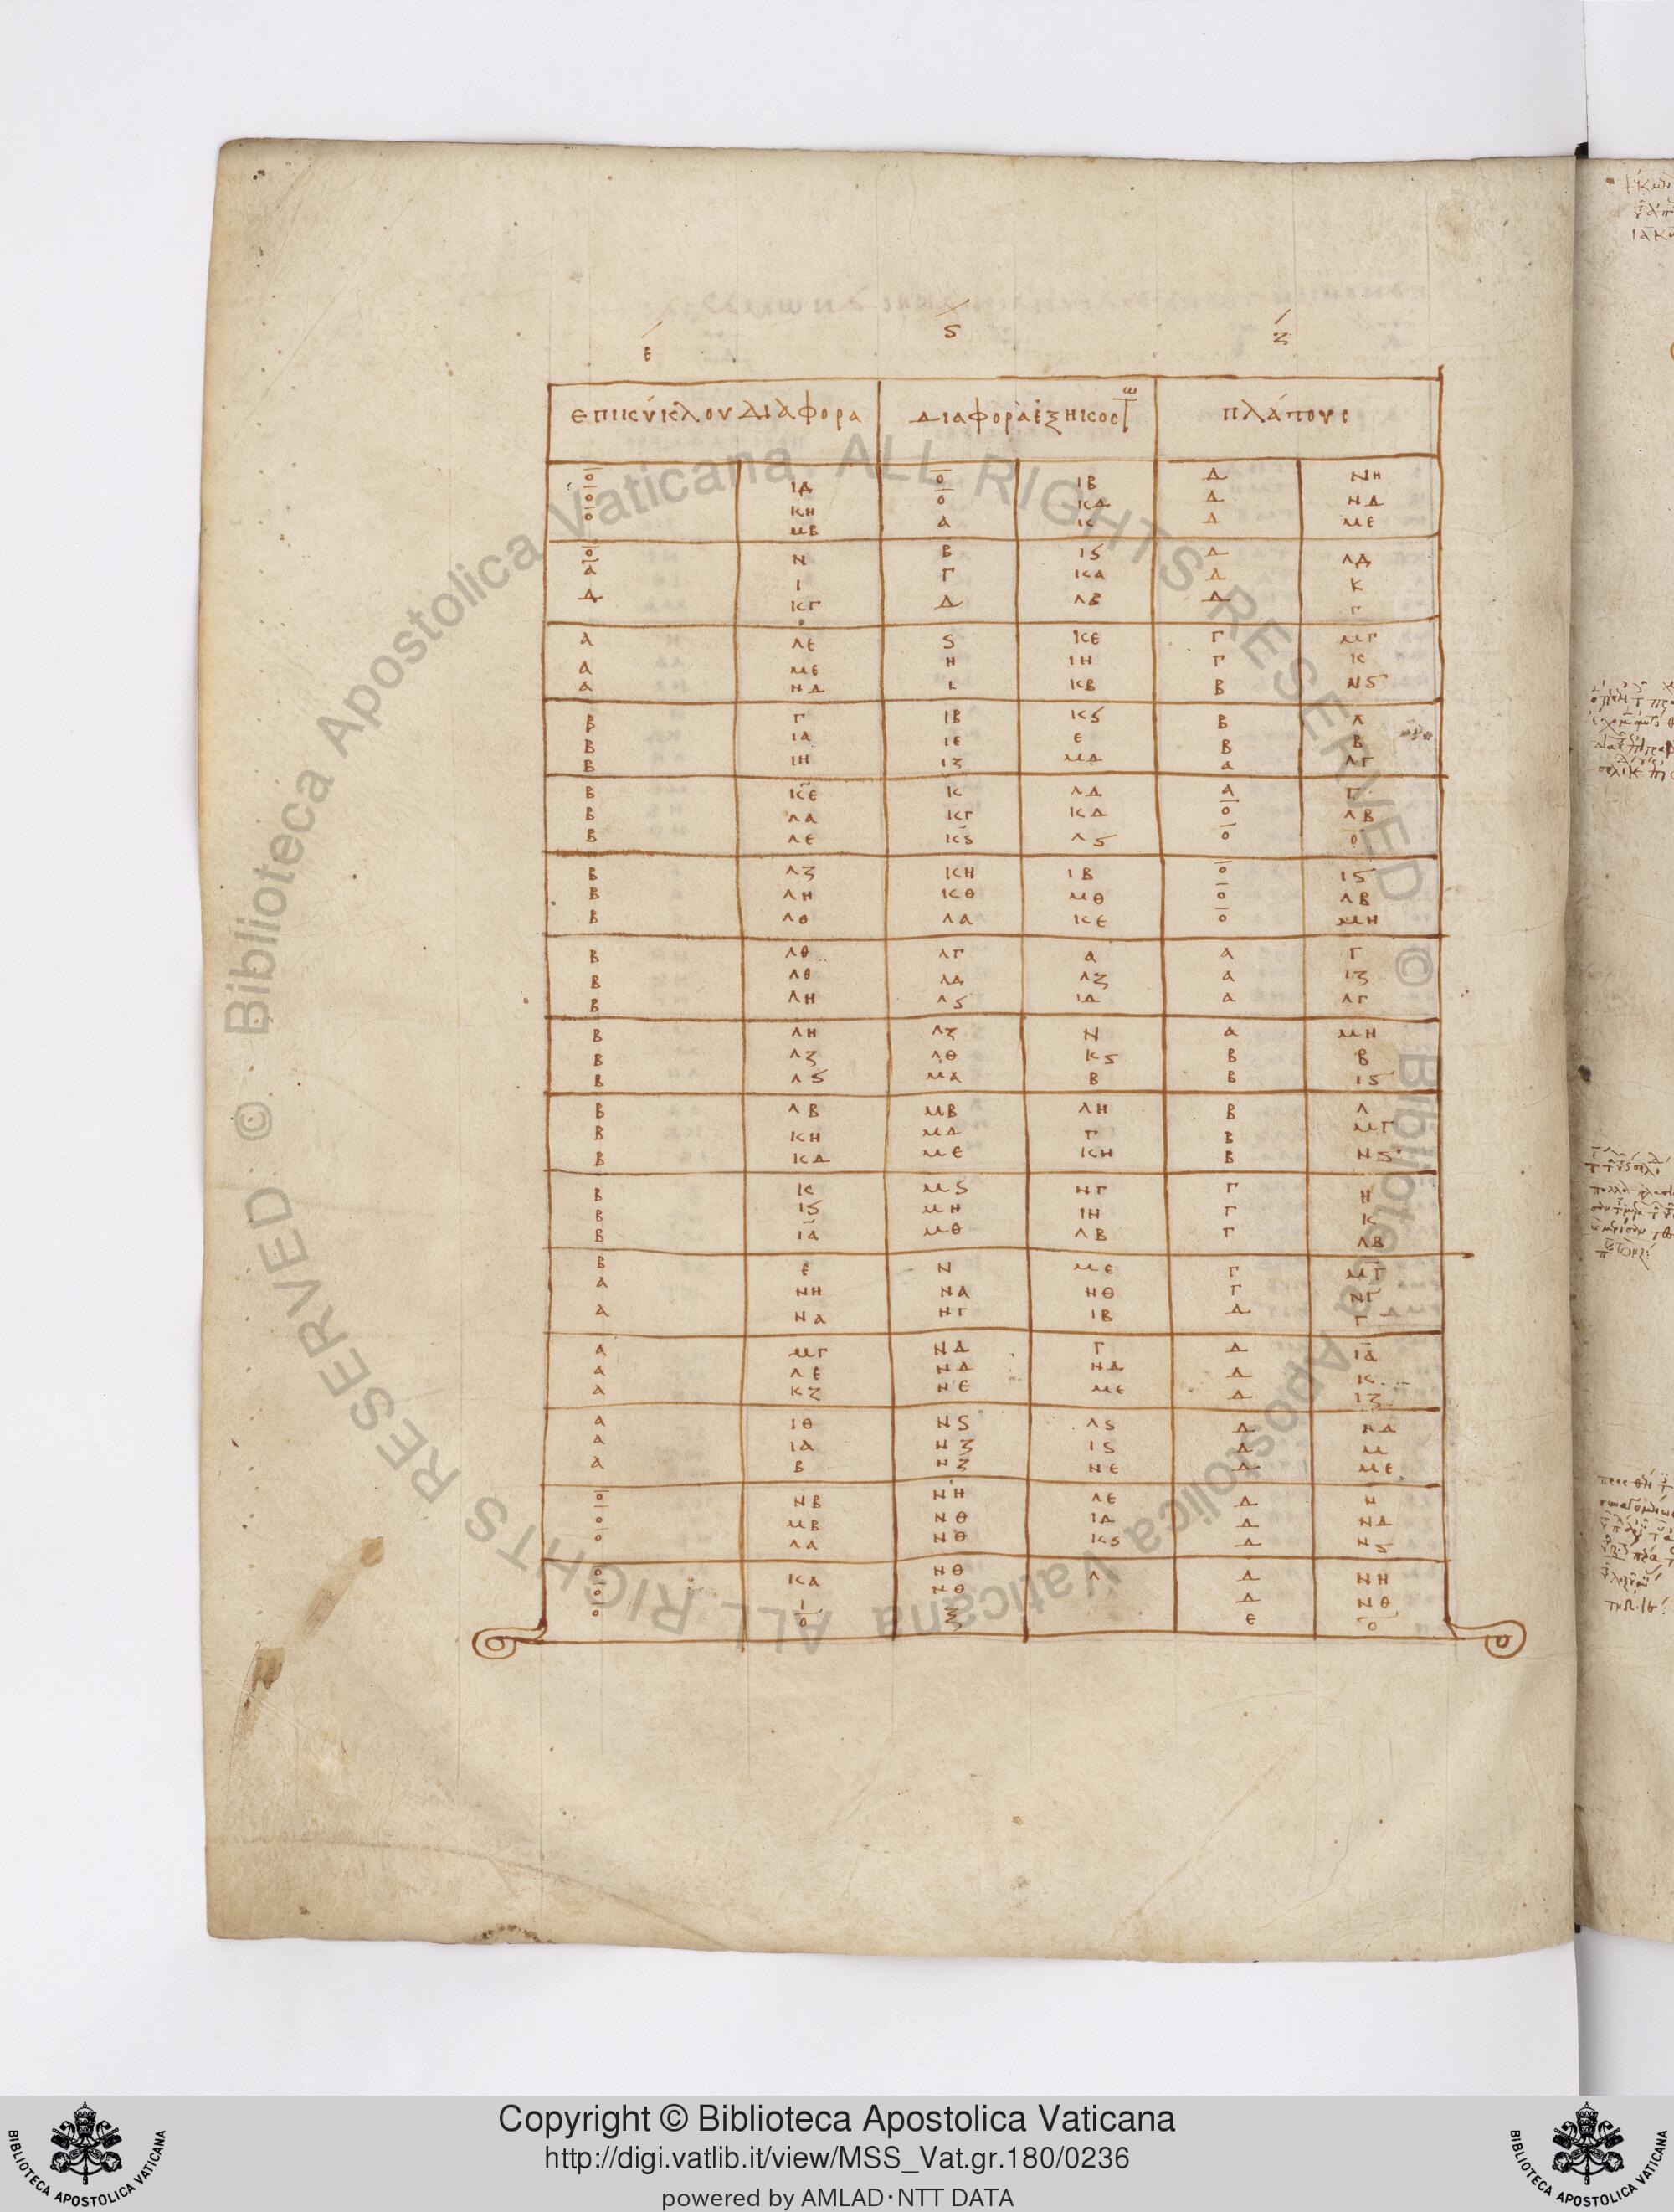 Ε Ϛ Ζ
επικύκλου διαφορα διαφορὰ ἑξηκοστω πλάτους
ο ΙΔ ο ΙΒ Δ ΝΗ
ο ΚΗ ο ΚΔ Δ ΝΔ
ο ΜΒ Α Κ Δ ΜΕ
ο Ν Β ΙϚ Δ ΛΔ
Α Ι Γ ΚΑ Δ Κ
Δ ΚΓ Δ ΛΒ Δ Γ
Α ΛΕ Ϛ ΚΕ Γ ΜΓ
Α ΜΕ Η ΙΗ Γ Κ
Α ΝΔ Ι ΚΒ Β ΝϚ
Β Γ ΙΒ ΚϚ Β Λ
Β ΙΑ ΙΕ Ε Β Β
Β ΙΗ ΙΖ ΜΔ Α ΛΓ
Β ΚΕ Κ ΛΔ Α Γ
Β ΛΑ ΚΓ ΚΔ ο ΛΒ
Β ΛΕ ΚϚ ΛϚ ο ο
Β ΛΖ ΚΗ ΙΒ ο ΙϚ
Β ΛΗ ΚΘ ΜΘ ο ΛΒ
Β ΛΘ ΛΑ ΚΕ ο ΜΗ
Β ΛΘ ΛΓ Α Α Γ
Β ΛΘ ΛΔ ΛΖ Α ΙΖ
Β ΛΗ ΛϚ ΙΔ Α ΛΓ
Β ΛΗ ΛΖ Ν Α ΜΗ
Β ΛΖ ΛΘ ΚϚ Β Β
Β ΛϚ ΜΑ Β Β ΙϚ
Β ΛΒ ΜΒ ΛΗ Β Λ
Β ΚΗ ΜΔ Γ Β ΜΓ
Β ΚΔ ΜΕ ΚΗ Β ΝϚ
Β Κ ΜϚ ΝΓ Γ Η
Β ΙϚ ΜΗ ΙΗ Γ Κ
Β ΙΑ ΜΘ ΛΒ Γ ΛΒ
Β Ε Ν ΜΕ Γ ΜΓ
Α ΝΗ ΝΑ ΝΘ Γ ΝΓ
Α ΝΑ ΝΓ ΙΒ Δ Γ Δ
Α ΜΓ ΝΔ Γ Δ ΙΑ
Α ΛΕ ΝΔ ΝΔ Δ Κ
Α ΚΖ ΝΕ ΜΕ Δ ΙΖ
Α ΙΘ ΝϚ ΛϚ Δ ΛΔ
Α ΙΑ ΝΖ ΙϚ Δ Μ
Α Β ΝΖ ΝΕ Δ ΜΕ
ο ΝΒ ΝΗ ΛΕ Δ Ν
ο ΜΒ ΝΘ ΙΔ Δ ΝΔ
ο ΛΑ ΝΘ ΚϚ Δ ΝϚ
ο ΚΑ ΝΘ Λ Δ ΝΗ
ο Ι ΝΘ Δ ΝΘ
ο ο Ξ Ε ο
© Biblioteca Apostolica Vaticana ALL RIGHTS RESERVED © Biblioteca Apostolica Vaticana ALL RIGHTS RESERVED
Copyright © Biblioteca Apostolica Vaticana
http://digi.vatlib.it/view/MSS_Vat.gr.180/0236
powered by AMLAD·NTT DATA
BIBLIOTECA APOSTOLICA VATICANA
BIBLIOTECA APOSTOLICA VATICANA